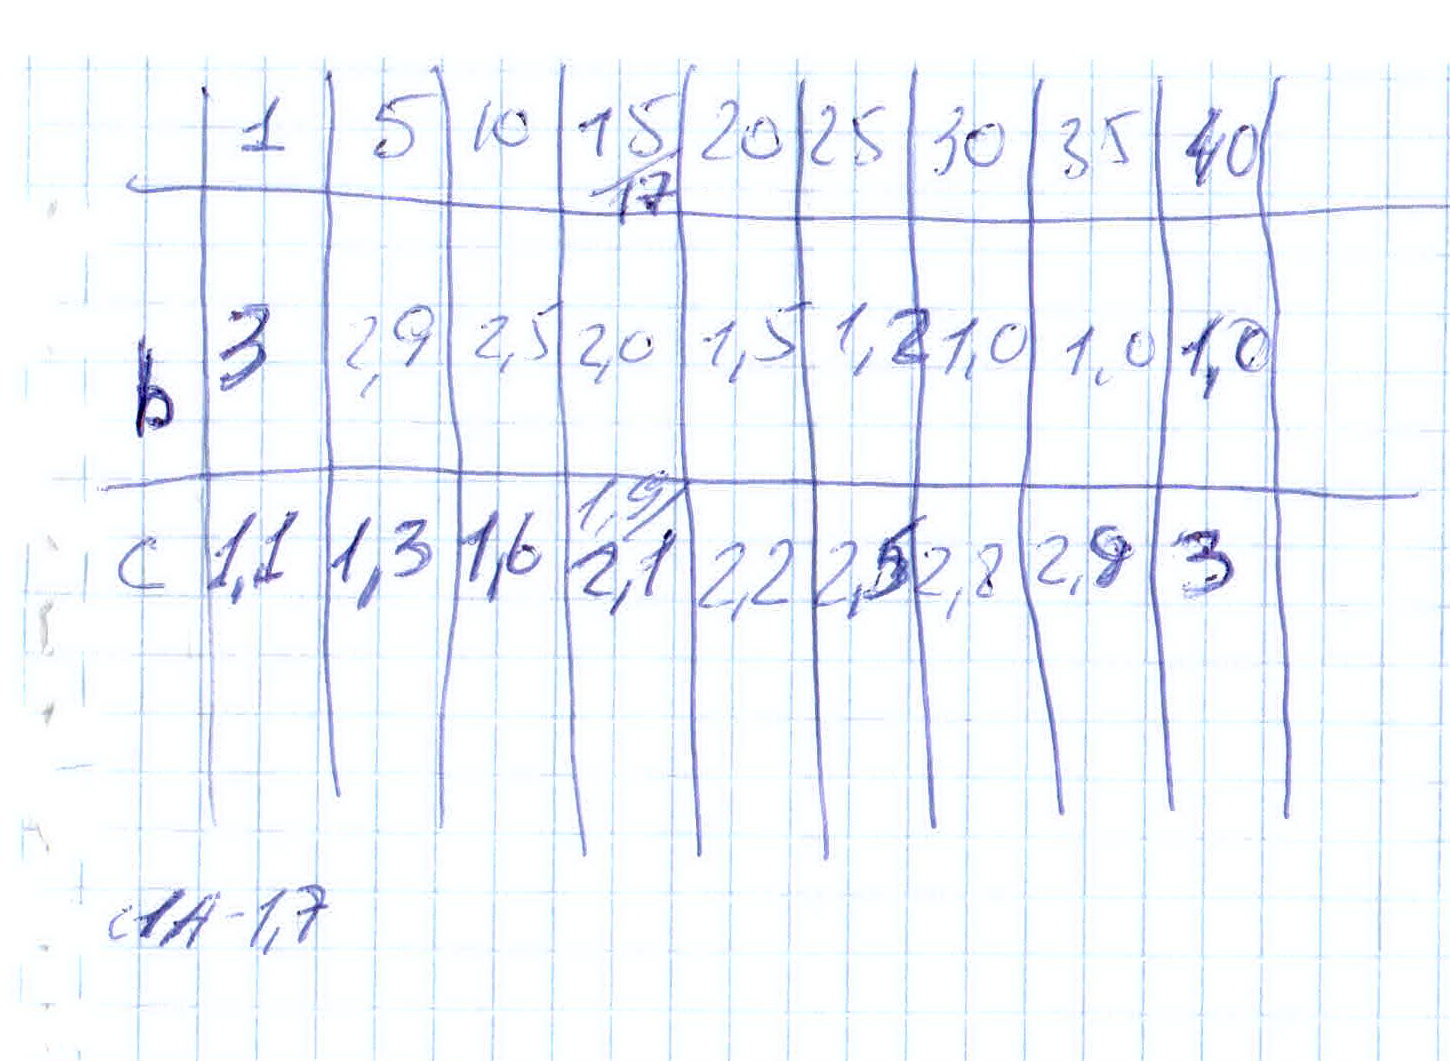 1 5 10 15/17 20 25 30 35 40
b 3 2,9 2,5 2,0 1,5 1,2 1,0 1,0 1,0
c 1,1 1,3 1,6 1,9/2,1 2,2 2,5 2,8 2,9 3
1,7